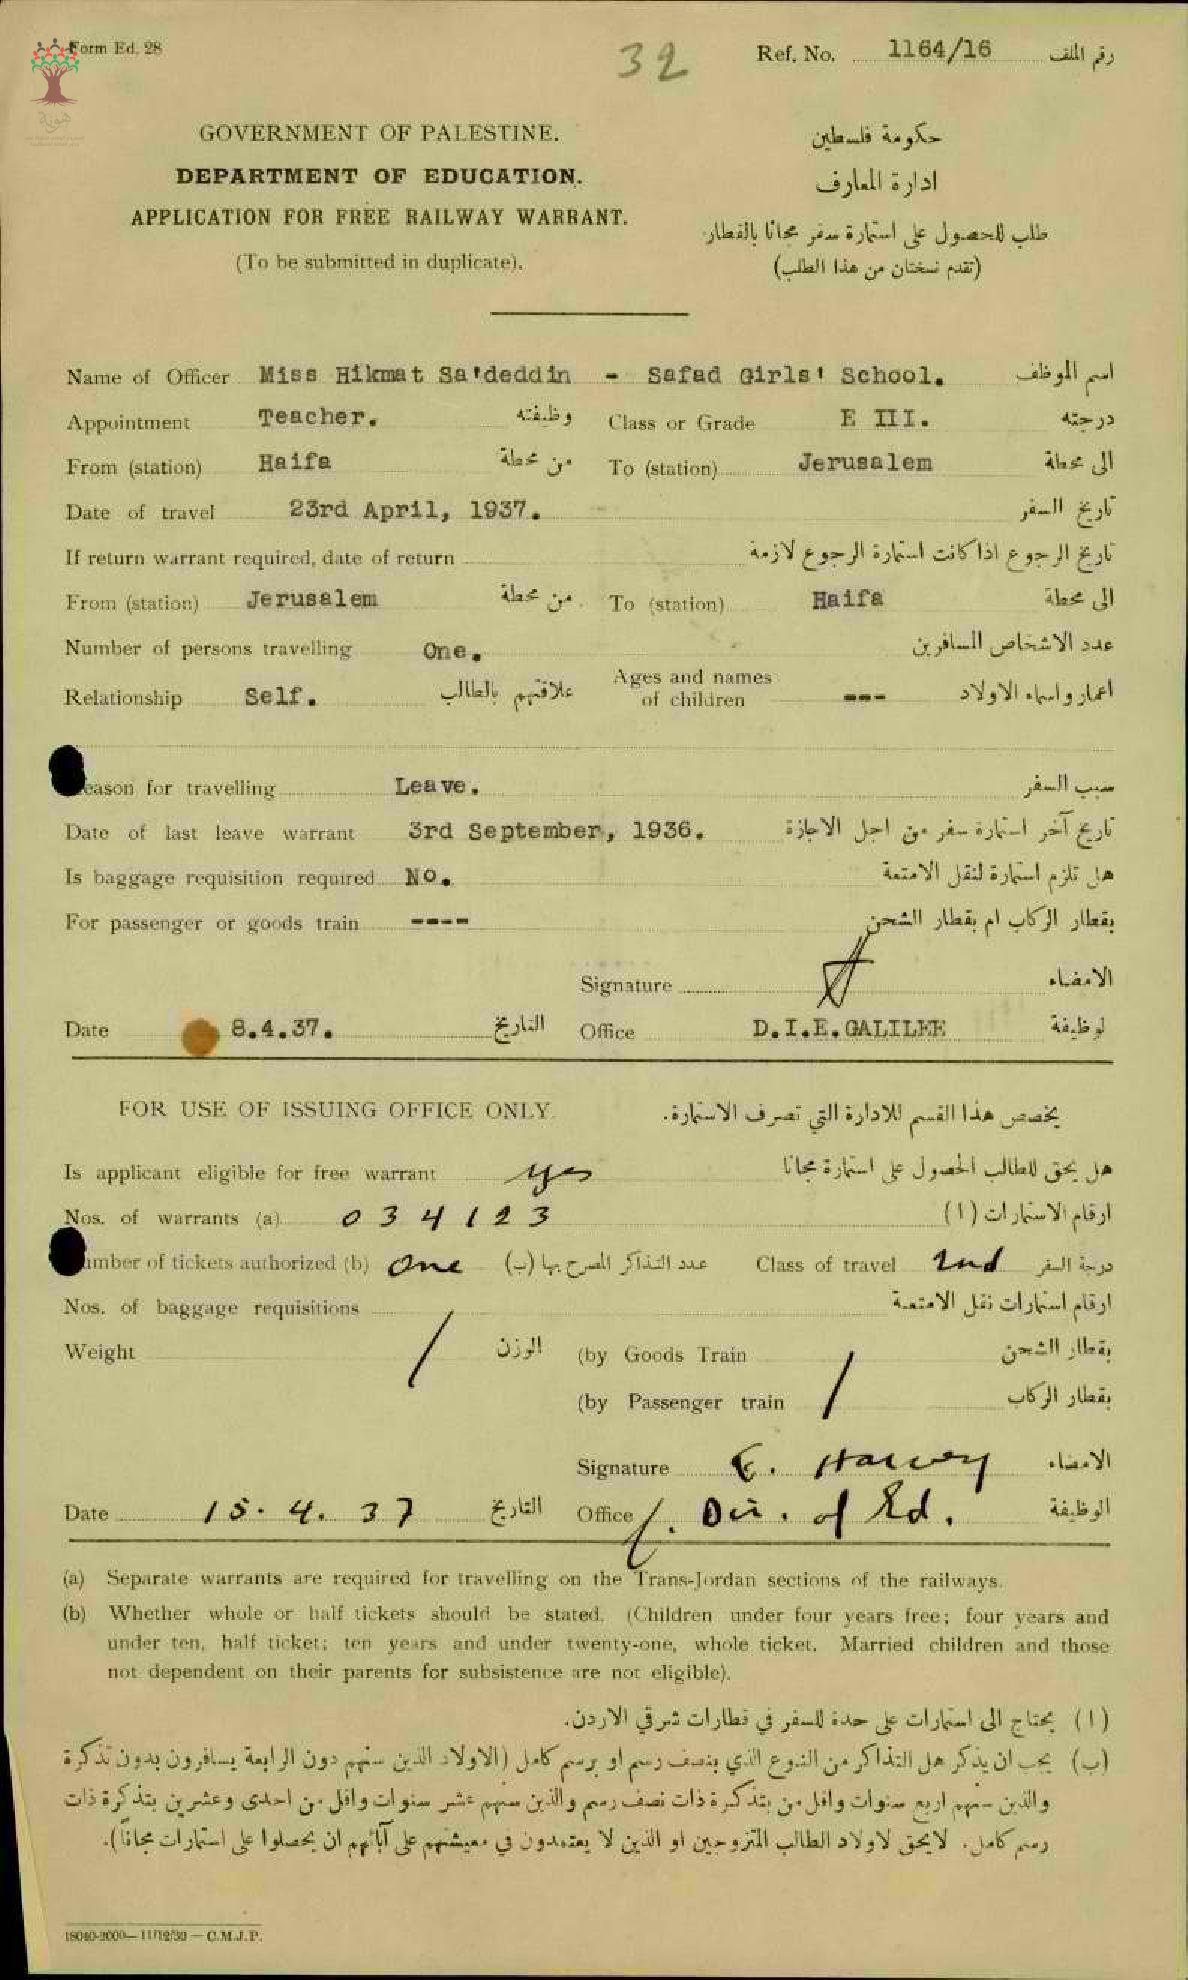 Form Ed. 28
32
Ref. No. 1164/16 رقم الملف
هوية
GOVERNMENT OF PALESTINE. حكومة فلسطين
DEPARTMENT OF EDUCATION. ادارة المعارف
APPLICATION FOR FREE RAILWAY WARRANT. طلب للحصول على استمارة سفر مجانا بالقطار
(To be submitted in duplicate). (تقدم نسختان من هذا الطلب)
Name of Officer Miss Hikmat Sa'deddin - Safad Girls' School. اسم الموظف
Appointment Teacher. وظيفته Class or Grade E III. درجته
From (station) Haifa من محطة To (station) Jerusalem الى محطة
Date of travel 23rd April, 1937. تاريخ السفر
If return warrant required, date of return تاريخ الرجوع اذا كانت استمارة الرجوع لازمة
From (station) Jerusalem من محطة To (station) Haifa الى محطة
Number of persons travelling One. عدد الاشخاص المسافرين
Relationship Self. علاقتهم بالطالب Ages and names of children --- اعمار واسماء الاولاد
eason for travelling Leave. سبب السفر
Date of last leave warrant 3rd September, 1936. تاريخ آخر استمارة سفر من اجل الاجازة
Is baggage requisition required No. هل تلزم استمارة لنقل الامتعة
For passenger or goods train ---- بقطار الركاب ام بقطار الشحن
Signature الامضاء
Date 8.4.37. التاريخ Office D.I.E.GALILEE لوظيفة
FOR USE OF ISSUING OFFICE ONLY. يخصص هذا القسم للادارة التي تصرف الاستمارة.
Is applicant eligible for free warrant yes هل يحق للطالب الحصول على استمارة مجانا
Nos. of warrants (a) 034123 ارقام الاستمارات (ا)
umber of tickets authorized (b) One عدد التذاكر المصرح بها (ب) Class of travel 2nd درجة السفر
Nos. of baggage requisitions ارقام استمارات نقل الامتعة
Weight / الوزن (by Goods Train بقطار الشحن
(by Passenger train / بقطار الركاب
Signature E. Harvey الامضاء
Date 15.4.37 التاريخ Office f. Dir. of Ed. الوظيفة
(a) Separate warrants are required for travelling on the Trans-Jordan sections of the railways.
(b) Whether whole or half tickets should be stated. (Children under four years free; four years and
under ten, half ticket; ten years and under twenty-one, whole ticket. Married children and those
not dependent on their parents for subsistence are not eligible).
(ا) يحتاج الى استمارات على حدة للسفر في قطارات شرقي الاردن.
(ب) يجب ان يذكر هل التذاكر من النوع الذي بنصف رسم او برسم كامل (الاولاد الذين سنهم دون الرابعة يسافرون بدون تذكرة
والذين سنهم اربع سنوات واقل من بتذكرة ذات نصف رسم والذين سنهم عشر سنوات واقل من احدى وعشرين بتذكرة ذات
رسم كامل. لايحق لاولاد الطالب المتزوجين او الذين لا يعتمدون في معيشتهم على آبائهم ان يحصلوا على استمارات مجاناً).
18040-2000—11/12/30 — C.M.J.P.